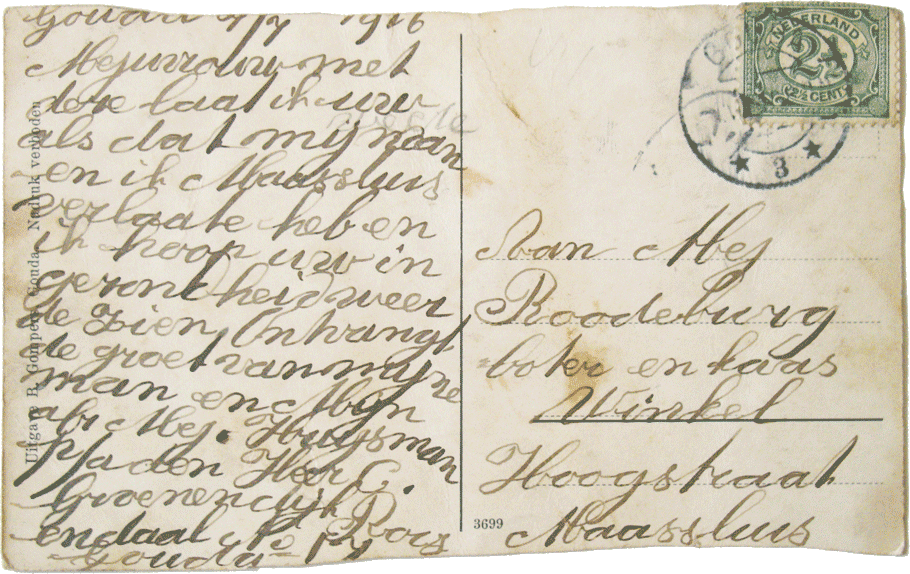 Gouda 4/7 1916
Mejuvrouw met
deze laat ik uw
als dat mij man
en ik Maassluis
verlaate heb en
ik hoop uw in
gezontheid weer
de zien Ontvangt
de groet van mijne
man en Mijn
abr Mej. Huijsman
p/a den Heer C.
Groenendijk
endaal Roos
Gouda
Uitgave R. Gompers, Gouda. Nadruk verboden
NEDERLAND
2½
(2½ CENT)
3
Aan Mej
Roodeburg
boter en kaas
Winkel
Hoogstraat
Maassluis
3699